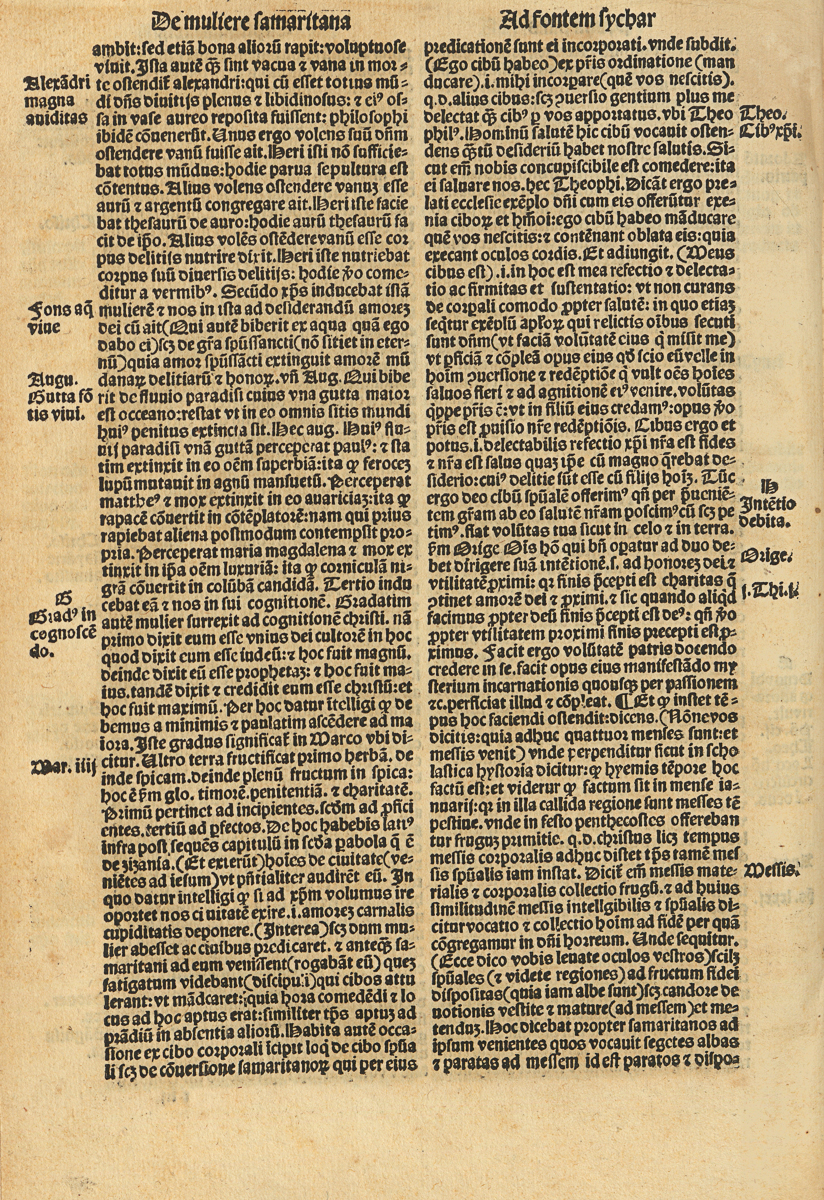 De muliere samaritana
Ad fontem sychar
ambit:sed etiã bona alioꝝ rapit:voluptuose
viuit. Ista autẽ ꝙ̃ sint vacua ⁊ vana in mor⸗
te ostendit̃ alexandri:qui cũ esset totius mũ⸗
di dñs diuitijs plenus ⁊ libidinosus: ⁊ eiꝰ os⸗
sa in vase aureo reposita fuissent: philosophi
ibidẽ cõuenerũt. Unus ergo volens suũ dñm
ostendere vanũ fuisse ait. Heri isti nõ sufficie⸗
bat totus mũdus: hodie parua sepultura est
cõtentus. Alius volens ostendere vanuꝫ esse
aurũ ⁊ argentũ congregare ait. Heri iste facie
bat thesaurũ de auro: hodie aurũ thesaurũ fa
cit de ip̃o. Alius volẽs ostẽdere vanũ esse cor
pus delitijs nutrire dixit. Heri iste nutriebat
corpus suũ diuersis delitijs: hodie ꝟo come⸗
ditur a vermibꝰ. Secũdo xp̃s inducebat istã
mulierẽ ⁊ nos in ista ad desiderandũ amoreꝫ
dei cũ ait(Qui autẽ biberit ex aqua quã ego
dabo ei)scꝫ de gr̃a spũssancti(nõ sitiet in eter⸗
nũ)quia amor spũssãcti extinguit amorẽ mũ
danaꝝ delitiarũ ⁊ honoꝝ. vñ Aug. Qui bibe
rit de fluuio paradisi cuius vna gutta maior
est occeano:restat vt in eo omnis sitis mundi
huiꝰ penitus extincta sit. Hec aug. Huiꝰ flu⸗
uij paradisi vnã guttã perceperat paulꝰ: ⁊ sta
tim extinxit in eo oẽm superbiã:ita ꝙ feroceꝫ
lupũ mutauit in agnũ mansuetũ. Perceperat
mattheꝰ ⁊ mox extinxit in eo auariciaꝫ:ita ꝙ
rapacẽ cõuertit in cõtẽplatorẽ:nam qui prius
rapiebat aliena postmodum contempsit pro⸗
pria. Perceperat maria magdalena ⁊ mox ex
tinxit in ip̃a oẽm luxuriã: ita ꝙ corniculã ni⸗
grã cõuertit in colũbã candidã. Tertio indu
cebat eã ⁊ nos in sui cognitionẽ. Gradatim
autẽ mulier surrexit ad cognitionẽ christi. nã
primo dixit eum esse vnius dei cultorẽ in hoc
quod dixit eum esse iudeũ: ⁊ hoc fuit magnũ.
deinde dixit eũ esse prophetaꝫ: ⁊ hoc fuit ma⸗
ius. tandẽ dixit ⁊ credidit eum esse christũ: et
hoc fuit maximũ. Per hoc datur ĩtelligi ꝙ de
bemus a minimis ⁊ paulatim ascẽdere ad ma
iora. Iste gradus significat̃ in Marco vbi di⸗
citur. Ultro terra fructificat primo herbã. de
inde spicam. deinde plenũ fructum in spica:
hoc ẽ ẜm glo. timorẽ. penitentiã. ⁊ charitatẽ.
Primũ pertinet ad incipientes. scd̃m ad ꝓfici
entes. tertiũ ad ꝑfectos. De hoc habebis latiꝰ
infra post sequẽs capitulũ in scd̃a ꝑabola q̃ ẽ
de zizania. (Et exierũt)hoĩes de ciuitate(ve⸗
niẽtes ad iesum)vt pñtialiter audirẽt eũ. In
quo datur intelligi ꝙ si ad xp̃m volumus ire
oportet nos ciuitatẽ exire.i.amoreꝫ carnalis
cupiditatis deponere. (Interea)scꝫ dum mu⸗
lier abesset ac ciuibus predicaret. ⁊ anteqꝫ sa⸗
maritani ad eum venissent(rogabãt eũ) queꝫ
fatigatum videbant(discipuli)qui cibos attu
lerant: vt mãdcaret: quia hora comedẽdi ⁊ lo
cus ad hoc aptus erat:similiter tp̃s aptuꝫ ad
prãdiũ in absentia aliorũ. Habita autẽ occa⸗
sione ex cibo corporali ĩcipit loq̃ de cibo spũa
li scꝫ de cõuersione samaritanoꝝ qui per eius
predicationẽ sunt ei incorporati. vnde subdit.
(Ego cibũ habeo)ex pr̃is ordinatione (man
ducare).i. mihi incorꝑare(quẽ vos nescitis).
q.d. alius cibus: scꝫ ꝯuersio gentium plus me
delectat ꝙ̃ cibꝰ ꝑ vos apportatus. vbi Theo
philꝰ. Hominũ salutẽ hic cibũ vocauit osten⸗
dens qꝫtũ desideriũ habet nostre salutis. Si⸗
cut em̃ nobis concupiscibile est comedere:ita
ei saluare nos. hec Theophi. Dicãt ergo pre⸗
lati ecclesie exẽplo dñi cum eis offerũtur exe⸗
nia ciboꝝ et hmõi: ego cibũ habeo mãducare
quẽ vos nescitis: ⁊ contẽnant oblata eis: quia
execant oculos cordis. Et adiungit. (Meus
cibus est).i. in hoc est mea refectio ⁊ delecta⸗
tio ac firmitas et sustentatio: vt non curans
de corꝑali comodo ꝓpter salutẽ: in quo etiaꝫ
seq̃tur exẽplũ apl̃oꝝ qui relictis oĩbus secuti
sunt dñm(vt faciã volũtatẽ eius q̃ misit me)
vt ꝑficiã ⁊ cõpleã opus eius qd̃ scio eũ velle in
hoĩm ꝯuersione ⁊ redẽptiõe q̃ vult oẽs hoĩes
saluos fieri ⁊ ad agnitionẽ eiꝰ venire. volũtas
q̃ppe pr̃is ẽ: vt in filiũ eius credamꝰ: opus ꝟo
pr̃is est ꝓuisio nr̃e redẽptiõis. Cibus ergo et
potus.i. delectabilis refectio xp̃i nr̃a est fides
⁊ nr̃a est salus quaꝫ ip̃e cũ magno q̃rebat de⸗
siderio: cuiꝰ delitie sũt esse cũ filijs hoĩꝫ. Tũc
ergo deo cibũ spũalẽ offerimꝰ qñ per ꝓueniẽ⸗
tem gr̃am ab eo salutẽ nr̃am poscimꝰ cũ scꝫ pe
timꝰ. fiat volũtas tua sicut in celo ⁊ in terra.
ẜm Orige. Oĩs hõ qui bñ oꝑatur ad duo de⸗
bet dirigere suã intẽtionẽ. s. ad honoreꝫ dei ⁊
vtilitatẽ ꝓximi: qꝛ finis p̃cepti est charitas q̃
ꝯtinet amorẽ dei ⁊ ꝓximi. ⁊ sic quando aliqd̃
facimus ꝓpter deũ finis p̃cepti est deꝰ: qñ ꝟo
ꝓpter vtilitatem proximi finis precepti est ꝓ⸗
ximus. Facit ergo volũtatẽ patris docendo
credere in se. facit opus eius manifestãdo my
sterium incarnationis quousqꝫ per passionem
⁊c. perficiat illud ⁊ cõpleat. ¶ Et ꝙ instet tẽ⸗
pus hoc faciendi ostendit:dicens. (Nõne vos
dicitis: quia adhuc quattuor menses sunt: et
messis venit) vnde ꝑpenditur sicut in scho
lastica hystoria dicitur: ꝙ hyemis tẽpore hoc
factũ est: et videtur ꝙ factum sit in mense ia⸗
nuarij: qꝛ in illa callida regione sunt messes tẽ
pestiue. vnde in festo penthecostes offereban
tur fruguꝫ primitie. q.d. christus licꝫ tempus
messis corporalis adhuc distet tp̃s tamẽ mes
sis spũalis iam instat. Dicit̃ em̃ messis mate⸗
rialis ⁊ corporalis collectio frugũ. ⁊ ad huius
similitudinẽ messis intelligibilis ⁊ spũalis di⸗
citur vocatio ⁊ collectio hoĩm ad fidẽ per quã
cõgregamur in dñi horreum. Unde sequitur.
(Ecce dico vobis leuate oculos vestros)scilꝫ
spũales (⁊ videte regiones) ad fructum fidei
dispositas(quia iam albe sunt)scꝫ candore de
uotionis vestite ⁊ mature(ad messem)et me⸗
tenduꝫ. Hoc dicebat propter samaritanos ad
ipsum venientes quos vocauit segetes albas
⁊ paratas ad messem id est paratos ⁊ dispo⸗
Alexãdri
magna
auiditas
Fons aq̃
viue
Augu.
Gutta fõ
tis viui.
G
Gradꝰ in
cognoscẽ
do.
Mar. iiij
Theo.
Cibꝰ xp̃i.
H
Intẽtio
debita.
Orige.
j. Thi. j.
Messis.